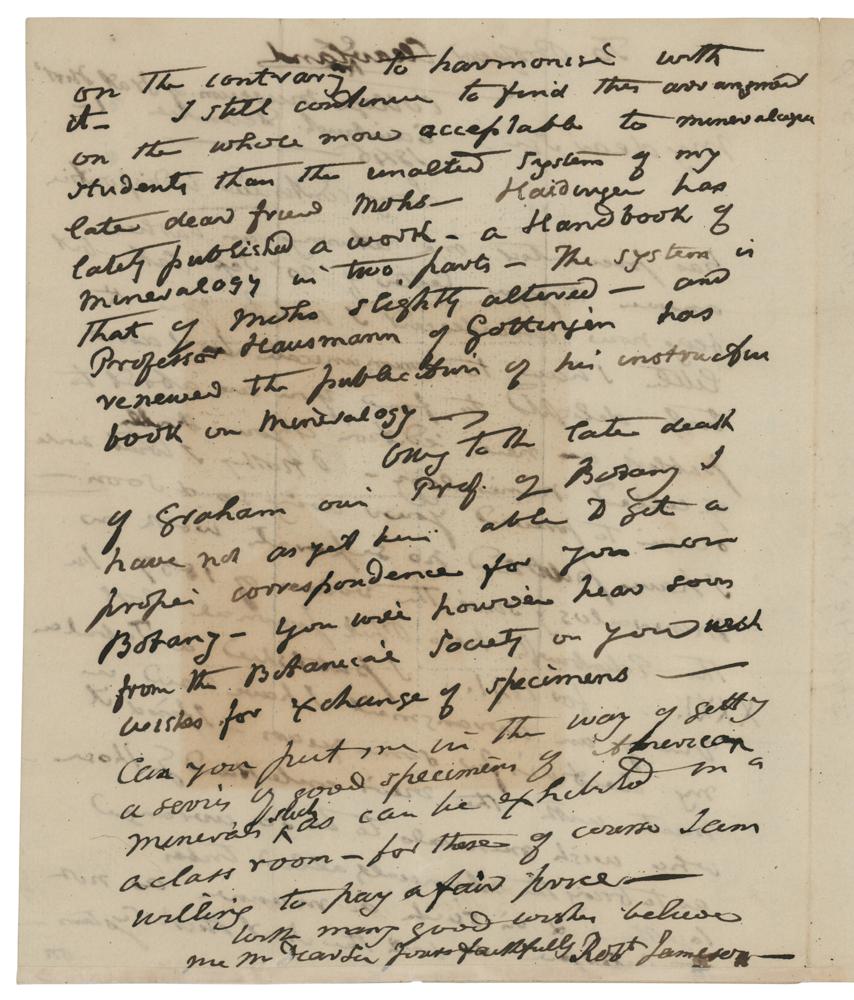 on the contrary to harmonise with
it – I still continue to find this arrangment
on the whole more acceptable to mineralogica
students than the unalterd System of my
late dear friend Mohs – Haidinger has
lately published a work – a Handbook of
Mineralogy in two parts – The system is
that of Mohs slightly altered – and
Professor Hausmann of Gottingen has
renewed the publication of his instruction
book on Mineralogy –
Owg to the late death
of Graham our Prof. of Botany I
have not as yet been able to get a
proper correspondence for you – on
Botany – you will however hear soon
from the Botanical Society on your
wishes for exchange of specimens –
Can you put me in the way of gettg
a series of good specimens of American
minerals such as can be exhibited in a
a class room – for these of course I am
willing to pay a fair price –
With many good wishes believe
me My Dear Sir Yours faithfully Robt Jameson